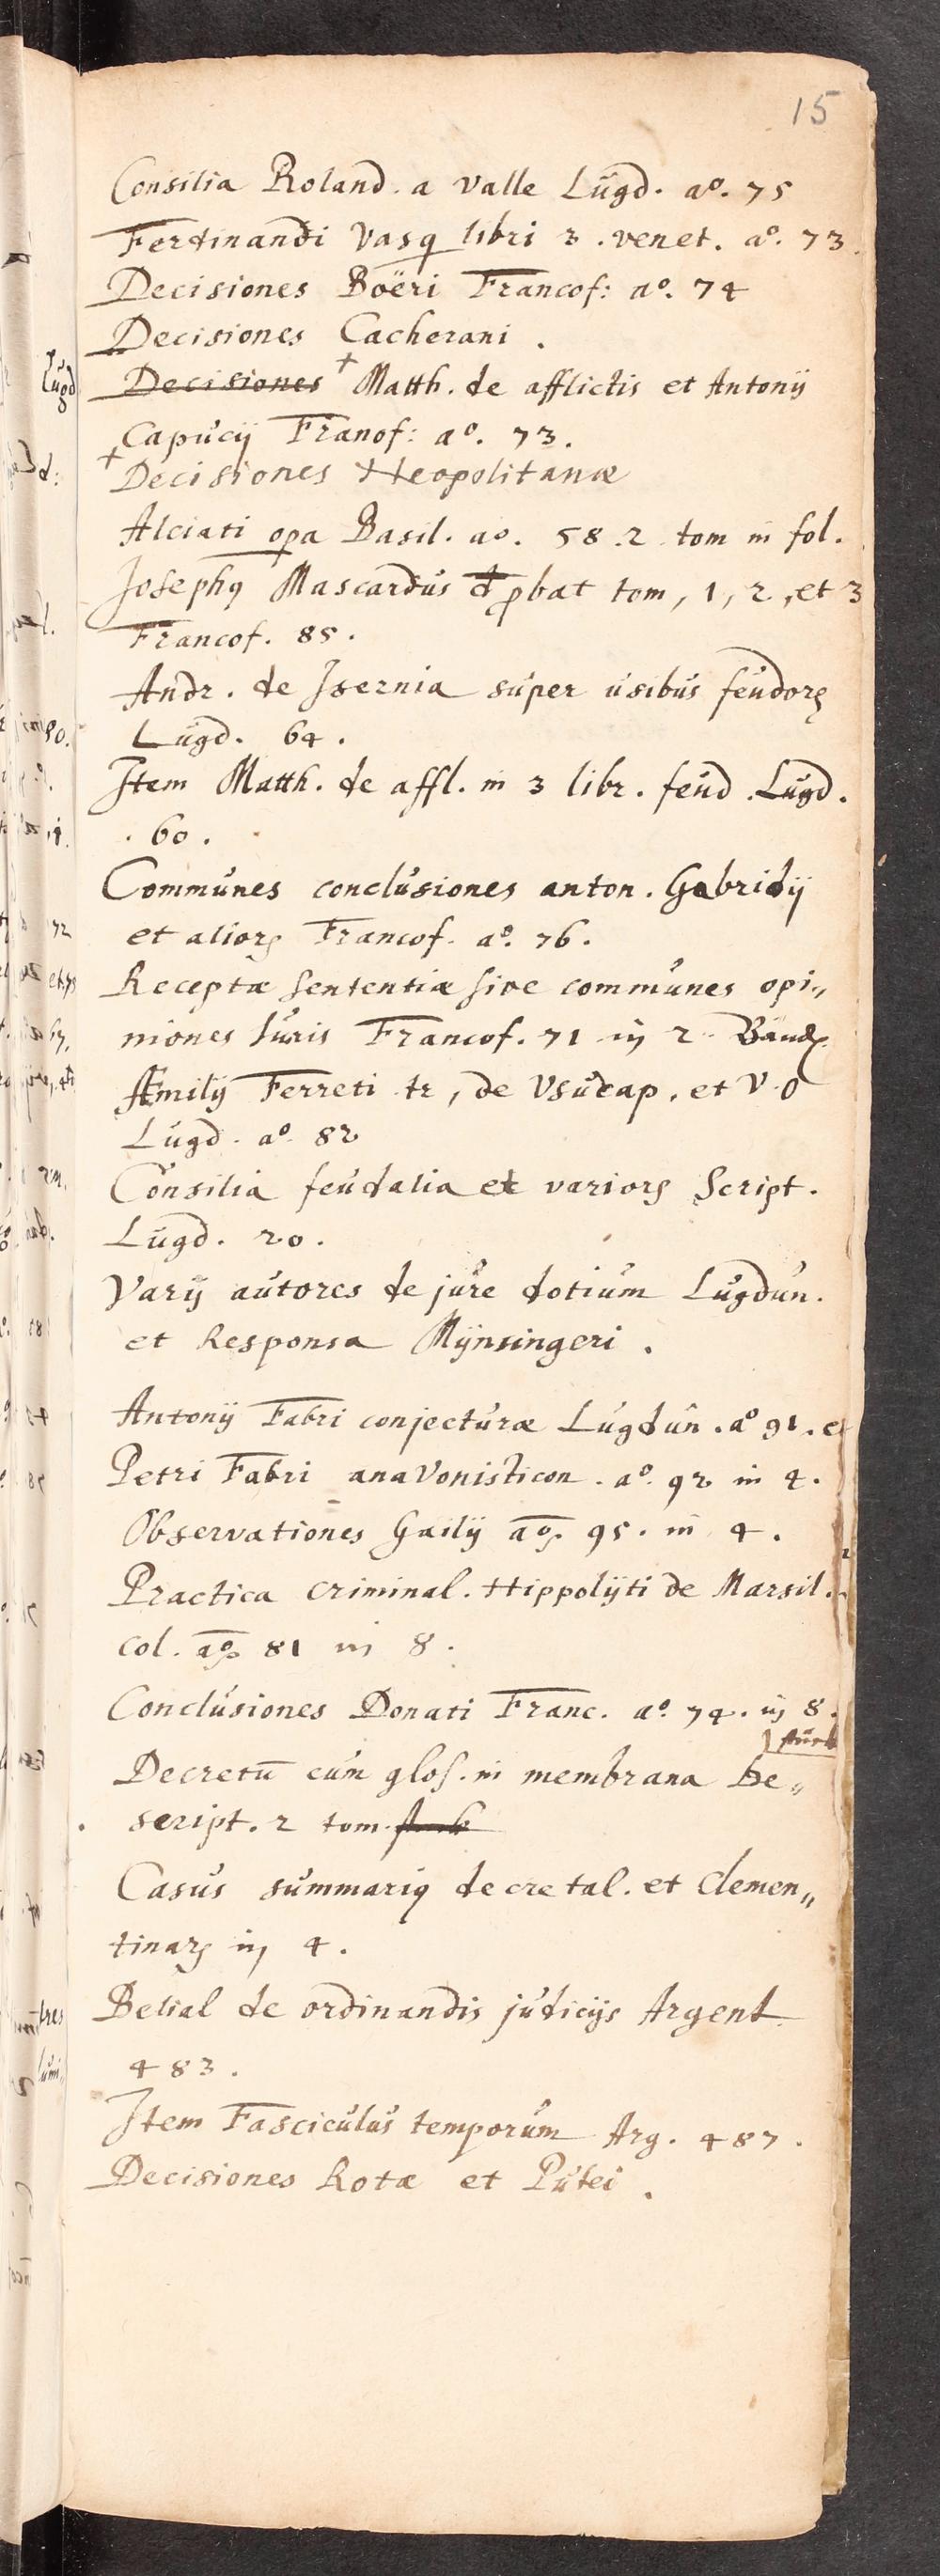 15
Consilia Roland. a Valle Lugd. ao. 75
Ferdinandi Vasq libri 3. venet. ao. 73.
Decisiones Boëri Francof: ao. 74
Decisiones Cacherani.
Decisiones + Matth. de afflictis et Antonij
Capucij Franof: ao. 73.
+ Decisiones Neopolitanæ
Alciati opa Basil. ao. 58. 2 tom in fol.
Josephq Mascardus d pbat tom, 1, 2, et 3
Francof. 85.
Andr. de Isernia super usibus feudorꝝ
Lugd. 64.
Item Matth. de affl. in 3 libr. feud. Lugd.
. 60.
Communes conclusiones anton. Gabrielij
et aliorꝝ Francof. ao. 76.
Receptæ sententiæ sive communes opi„
niones Iuris Francof. 71 in 2
Æmilij Ferreti tr, de Usucap. et V. O
Lugd. ao. 82
Consilia feudalia et variorꝝ Script.
Lugd. 20.
Varij autores de jure dotium Lugdun.
et Responsa Mÿnsingeri.
Antonij Fabri conjecturæ Lugdun. ao 91. et
Petri Fabri anaVonisticon. ao. 92 in 4.
Observationes Gailij ao. 95. in 4.
Practica criminal. Hippolÿti de Marsil.
col. ao. 81 in 8.
Conclusiones Donati Franc. ao. 74. in 8.
Decretū cum glos. in membrana be„
script. 2 tom.
Casus summariq decretal. et Clemen„
tinarꝝ in 4.
Belial de ordinandis judicijs Argent
483.
Item Fasciculus temporum Arg. 487.
Decisiones Rotæ et Putei.